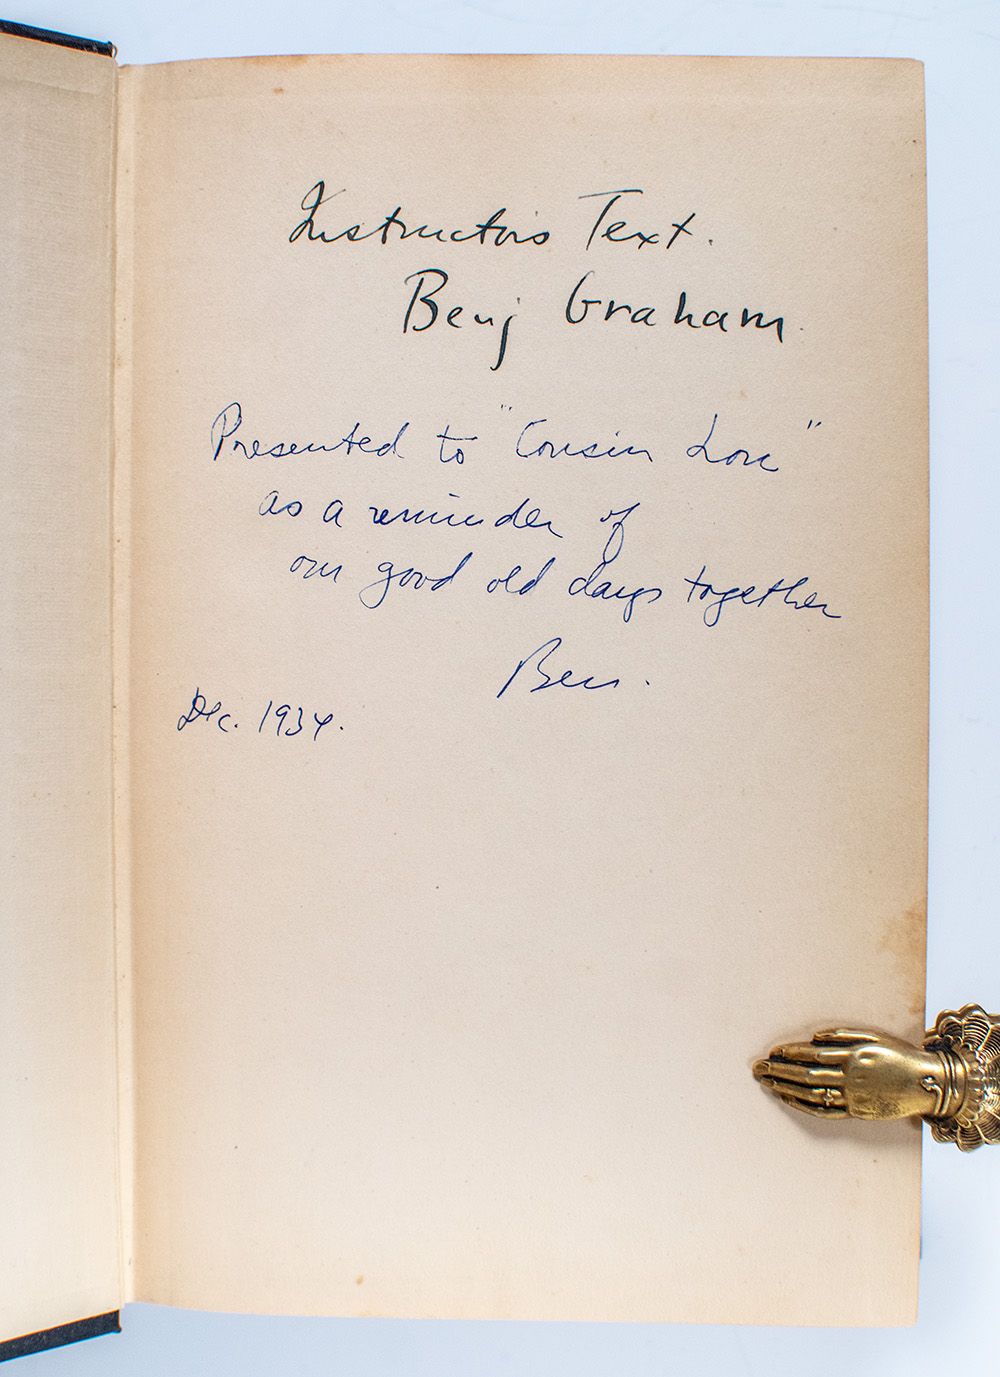 Instructor's Text.
Benj Graham.
Presented to "Cousin Lou"
as a reminder of
our good old days together
Ben.
Dec. 1934.